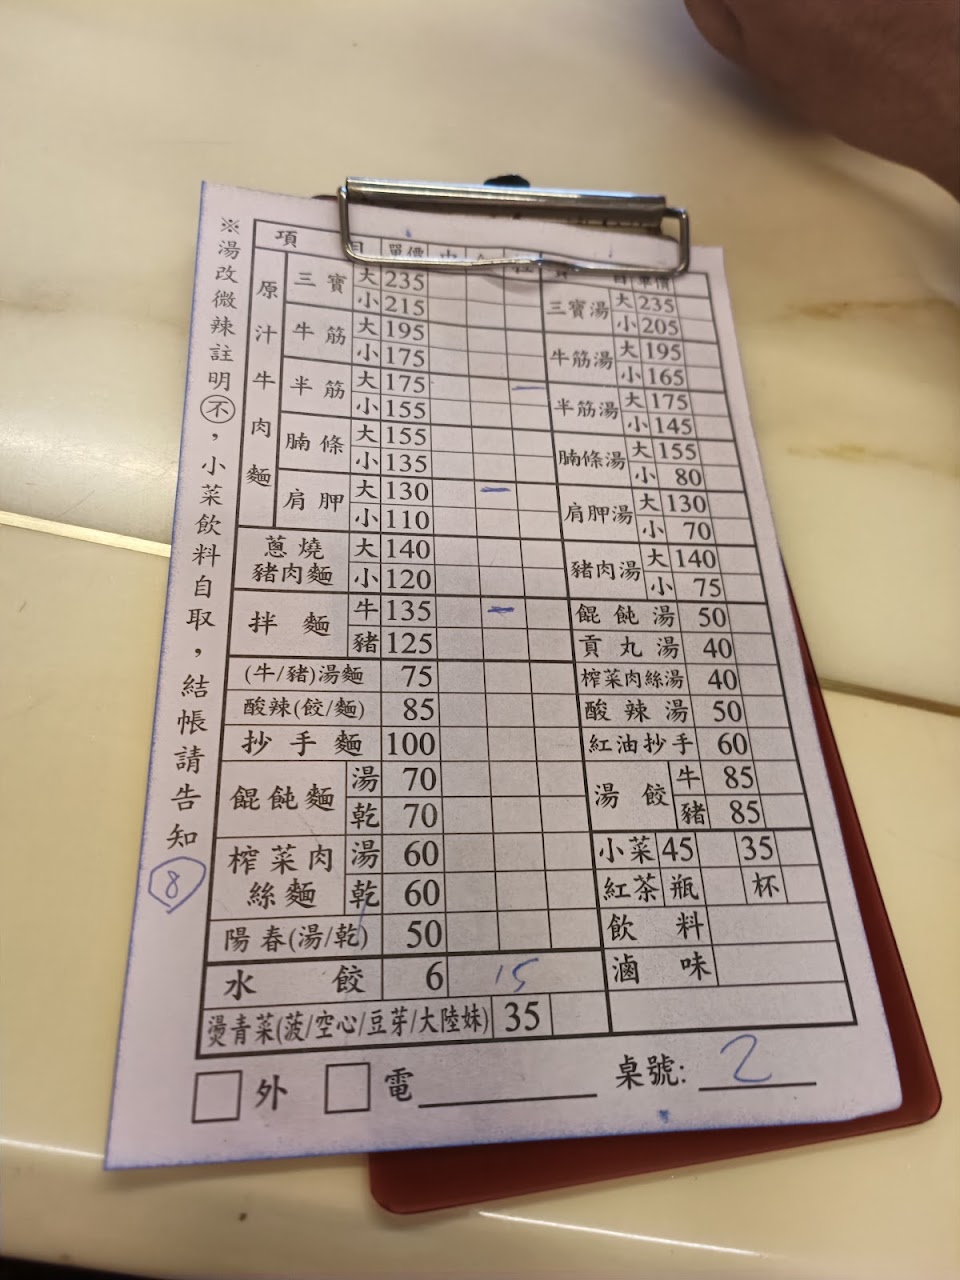 ※湯改微辣註明不，小菜飲料自取，結帳請告知
8
項 目 單價
原汁牛肉麵
三寶 大 235
小 215
牛筋 大 195
小 175
半筋 大 175 一
小 155
腩條 大 155
小 135
肩胛 大 130 一
小 110
蔥燒豬肉麵 大 140
小 120
拌麵 牛 135 一
豬 125
(牛/豬)湯麵 75
酸辣(餃/麵) 85
抄手麵 100
餛飩麵 湯 70
乾 70
榨菜肉絲麵 湯 60
乾 60
陽春(湯/乾) 50
水餃 6 15
燙青菜(菠/空心/豆芽/大陸妹) 35
目 單價
三寶湯 大 235
小 205
牛筋湯 大 195
小 165
半筋湯 大 175
小 145
腩條湯 大 155
小 80
肩胛湯 大 130
小 70
豬肉湯 大 140
小 75
餛飩湯 50
貢丸湯 40
榨菜肉絲湯 40
酸辣湯 50
紅油抄手 60
湯餃 牛 85
豬 85
小菜 45 35
紅茶 瓶 杯
飲料
滷味
外 電
桌號: 2